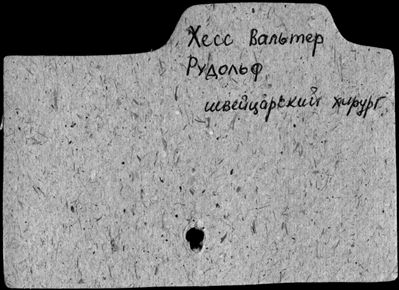 Хесс Вальтер
Рудольф
швейцарский хирург